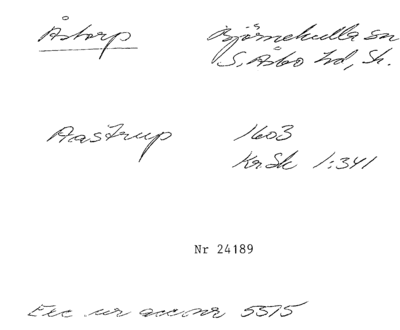 Åstorp Björnekulla sn
S. Åsbo hd, Sk.
Aastrup 1603
Kr.Sk 1:341
Nr 24189
Exc ur acc.nr 5515